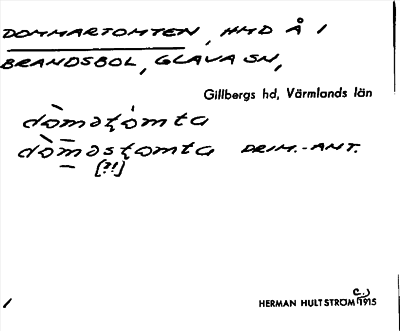 DOMMARTOMTEN, HMD Å 1
BRANDSBOL, GLAVA SN,
Gillbergs hd, Värmlands län
dòməţòmta
dòm̄əsţomta PRIM.-ANT.
[?!]
HERMAN HULTSTRÖM c.) 1915
/